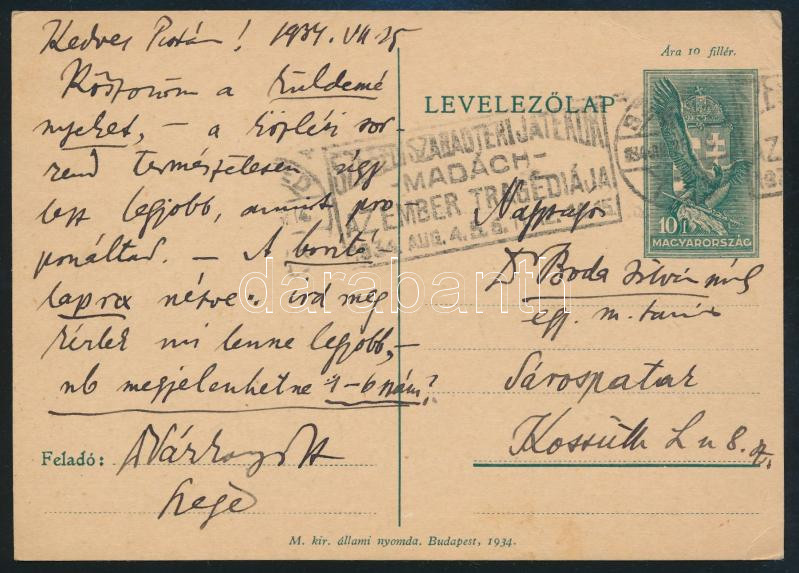 Kedves Pistám! 1934. VII. 25
Köszönöm a küldemé
nyeket, – a közlési sor-
rend természetesen úgy
lesz legjobb, amint pro-
ponáltad. – A borító
lapra nézve írd meg
kérlek mi lenne legjobb, –
nb megjelenhetne 4–6 szám?
Feladó:
Szeged
Ára 10 fillér.
LEVELEZŐLAP
SZEGEDI SZABADTÉRI JÁTÉKOK
-MADÁCH-
AZ EMBER TRAGÉDIÁJA
1934. AUG. 4. 5. 6.
10 f
MAGYARORSZÁG
Nagyságos
Dr Boda István
egy. m. tanár
Sárospatak
Kossuth L u 8.
M. kir. állami nyomda. Budapest, 1934.
darabanth